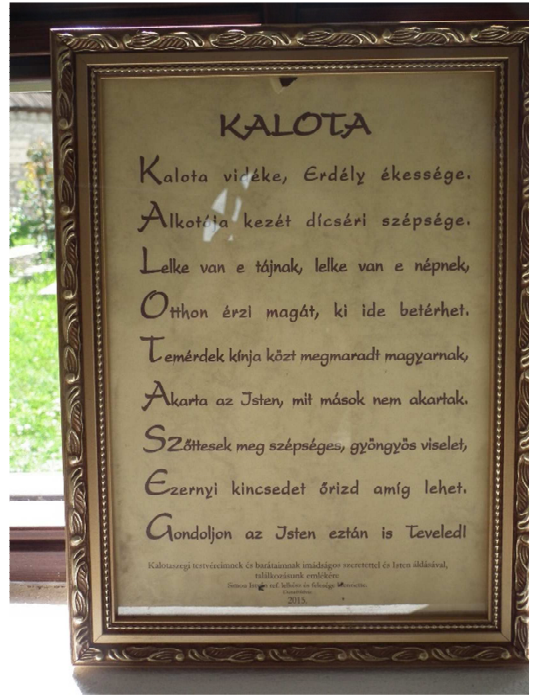 KALOTA
Kalota vidéke, Erdély ékessége.
Alkotója kezét dícséri szépsége.
Lelke van e tájnak, lelke van e népnek,
Otthon érzi magát, ki ide betérhet.
Temérdek kínja közt megmaradt magyarnak,
Akarta az Isten, mit mások nem akartak.
Szőttesek meg szépséges, gyöngyös viselet,
Ezernyi kincsedet őrizd amíg lehet.
Gondoljon az Isten eztán is Teveled!
Kalotaszegi testvéreimnek és barátaimnak imádságos szeretettel és Isten áldásával,
találkozásunk emlékére
István ref. lelkész és felesége
2015.